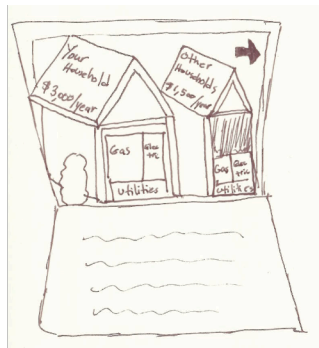 Your
Household
$3,000/year
Gas
Elec
tric
utilities
Other
Households
$1,500/year
Gas
Elec
tric
utilities